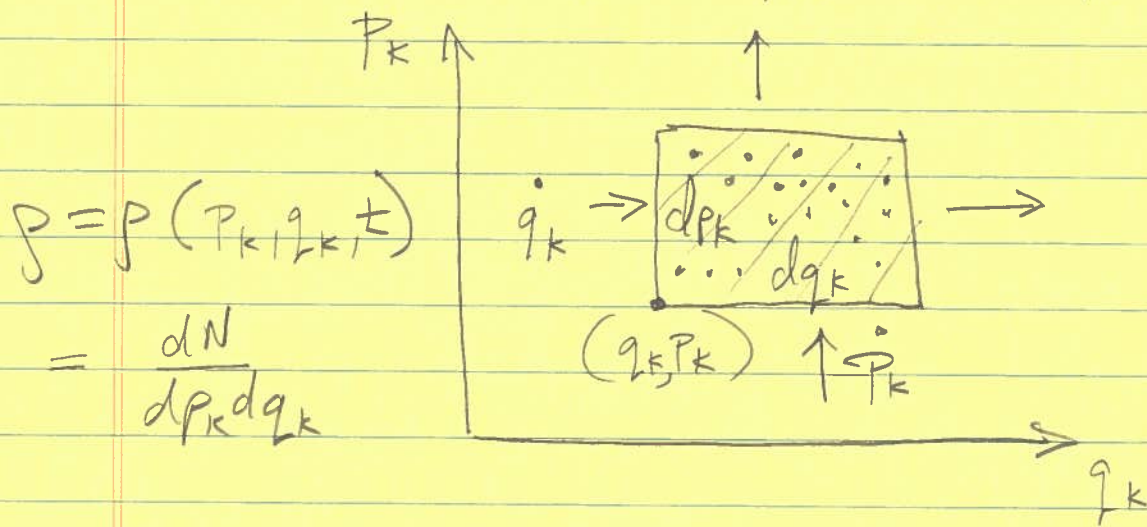 Pₖ
ρ = ρ (pₖ, qₖ, t)
q̇ₖ → dpₖ
dqₖ
= dN / dpₖ dqₖ
(qₖ, pₖ) ↑ ṗₖ
qₖ